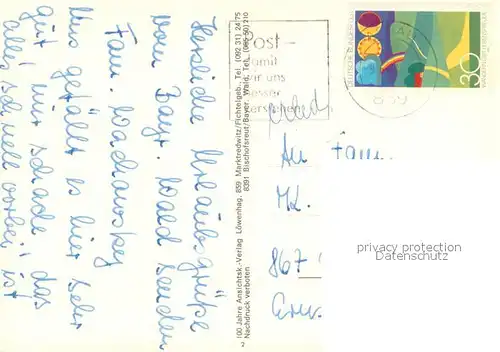 Herzliche Urlaubsgrüße
vom Bayr. Wald senden
Fam.
Uns gefällt es hier sehr
gut! nur schade das
alles schnell vorbei ist
100 Jahre Ansichtsk.-Verlag Löwenhag, 859 Marktredwitz/Fichtelgeb., Tel. (092 31) 24 75
8391 Bischofsreut/Bayer. Wald, Tel. (085 50) 210
Nachdruck verboten
Post –
damit
wir uns
besser
verstehen
30
An Fam.
867
privacy protection
Datenschutz